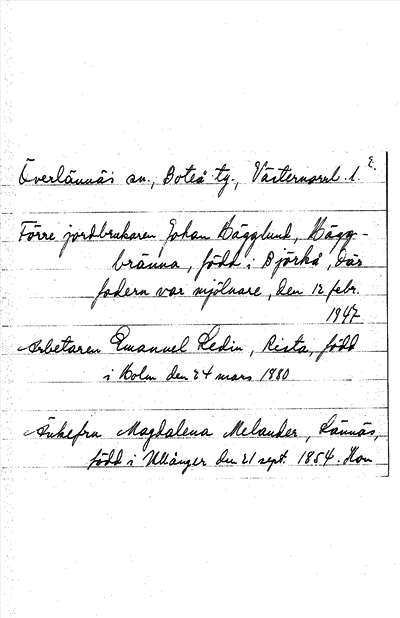 E.
Överlännäs sn., Boteå tg., Västernorrl. l.
Förre jordbrukaren Johan Hägglund, Hägg-
bränna, född i Björkå, där
fadern var mjölnare, den 12 febr.
1947
Arbetaren Emanuel Hedin, Rista, född
i Holm den 24 mars 1880
Änkefru Magdalena Melander, Lännäs,
född i Ullånger den 21 sept. 1854. Hon